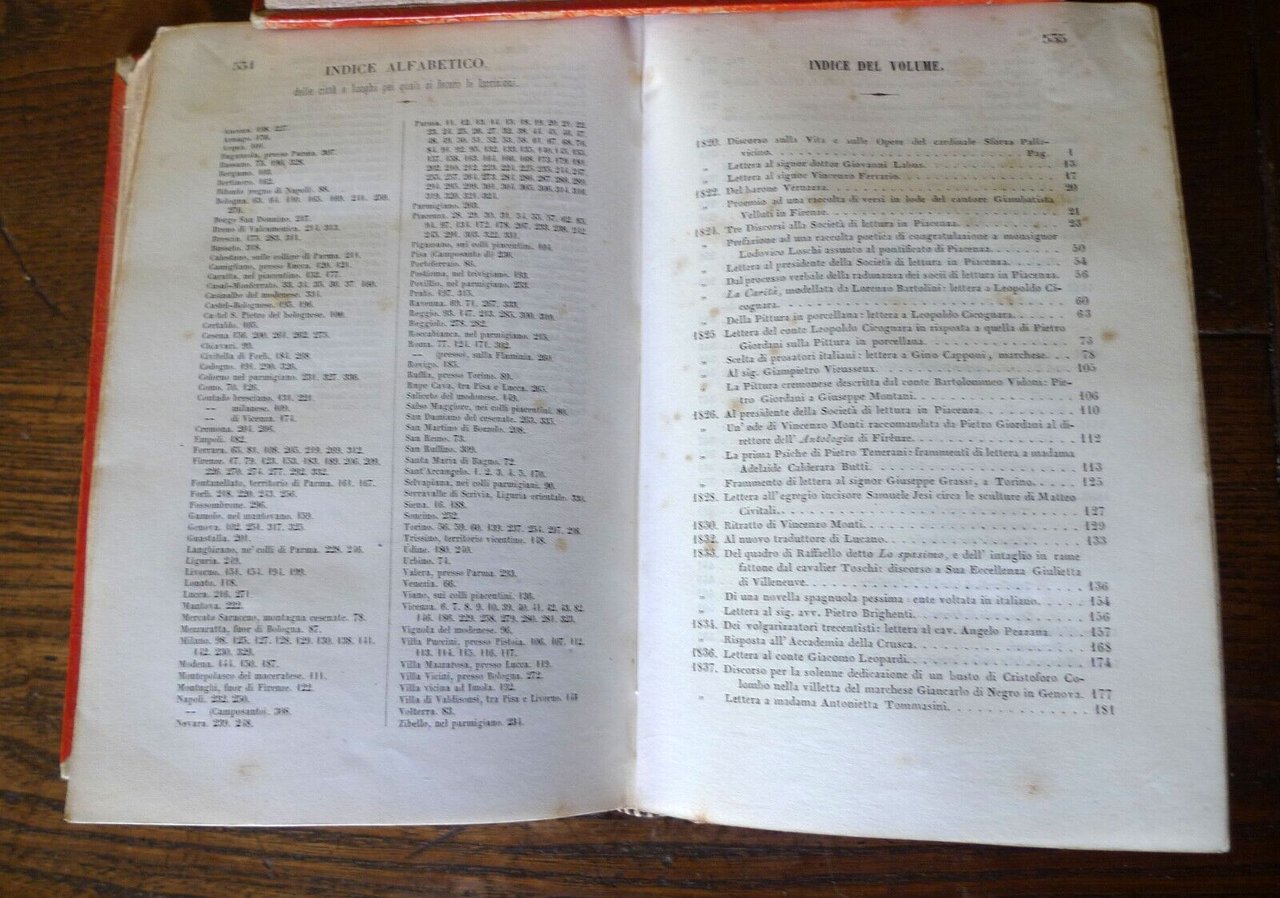 334
INDICE ALFABETICO.
delle città e luoghi pei quali si fecero le Iscrizioni.
Ancona. 198. 227.
Bassano. 73. 196. 328.
Bergamo. 103.
Bertinoro. 162.
Bibulo (regno di Napoli). 88.
Borgo San Donnino. 217.
Breno di Valcamonica. 211. 313.
Brescia. 173. 283. 311.
Busseto. 318.
Calestano, sulle colline di Parma. 214.
Camigliano, presso Lucca. 120. 121.
Caratta, nel piacentino. 132. 177.
Casal-Monferrato. 33. 34. 35. 36. 37. 160.
Casinalbo del modenese. 331.
Castel-Bolognese. 195. 196.
Castel S. Pietro del bolognese. 100.
Certaldo. 105.
Cesena 156. 200. 261. 262. 275.
Chiavari. 99.
Civitella di Forlì. 184. 268.
Codogno. 191. 290. 326.
Colorno nel parmigiano. 231. 327. 336.
Como. 70. 126.
Contado bresciano. 131. 221.
— milanese. 109.
— di Vicenza. 174.
Cremona. 204. 296.
Empoli. 182.
Ferrara. 65. 81. 108. 205. 249. 269. 312.
Firenze. 47. 79. 123. 153. 183. 189. 206. 209.
226. 270. 274. 277. 292. 332.
Fontanellato, territorio di Parma. 161. 167.
Forlì. 218. 220. 243. 256.
Fossombrone. 296.
Gazuolo, nel mantovano. 159.
Genova. 102. 254. 317. 325.
Guastalla. 201.
Langhirano, ne' colli di Parma. 228. 246.
Liguria. 249.
Livorno. 151. 154. 194. 199.
Lonato. 118.
Lucca. 216. 271.
Mantova. 222.
Mercato Saraceno, montagna cesenate. 78.
Mezzaratta, fuor di Bologna. 87.
Milano. 98. 125. 127. 128. 129. 130. 138. 141.
142. 230. 329.
Modena. 144. 150. 187.
Montepolasco del maceratese. 111.
Montughi, fuor di Firenze. 122.
Napoli. 232. 250.
— (Camposanto). 308.
Novara. 239. 248.
Parmigiano. 203.
Piganzano, sui colli piacentini. 104.
Pisa (Camposanto di) 236.
Portoferraio. 85.
Postioma, nel trivigiano. 193.
Poviglio, nel parmigiano. 233.
Prato. 197. 315.
Ravenna. 69. 71. 267. 333.
Reggio. 93. 147. 213. 285. 300. 310.
Reggiolo. 278. 282.
Roccabianca, nel parmigiano. 215.
Roma. 77. 124. 171. 302.
— (presso), sulla Flaminia. 260.
Rovigo. 185.
Ruffia, presso Torino. 89.
Rupe Cava, tra Pisa e Lucca. 265.
Saliceto del modenese. 149.
Salso Maggiore, nei colli piacentini. 80.
San Damiano del cesenate. 263. 335.
San Martino di Bozzolo. 208.
San Remo. 73.
San Ruffino. 309.
Santa Maria di Bagno. 72.
Sant'Arcangelo. 1. 2. 3. 4. 5. 170.
Selvapiana, nei colli parmigiani. 90.
Serravalle di Scrivia, Liguria orientale. 330.
Siena. 16. 188.
Soncino. 252.
Torino. 56. 59. 60. 139. 237. 251. 297. 298.
Trissino, territorio vicentino. 148.
Udine. 180. 240.
Urbino. 74.
Valera, presso Parma. 293.
Venezia. 66.
Viano, sui colli piacentini. 136.
Vicenza. 6. 7. 8. 9. 10. 39. 40. 41. 42. 43. 82.
146. 186. 229. 258. 279. 280. 281. 323.
Vignola del modenese. 96.
Villa Puccini, presso Pistoia. 106. 107. 112.
113. 114. 115. 116. 117.
Villa Mazzarosa, presso Lucca. 119.
Villa Vicini, presso Bologna. 272.
Villa vicina ad Imola. 192.
Villa di Valdisonsi, tra Pisa e Livorno. 161
Volterra. 83.
Zibello, nel parmigiano. 234.
335
INDICE DEL VOLUME.
1820. Discorso sulla Vita e sulle Opere del cardinale Sforza Palla-
vicino. Pag. 1
„ Lettera al signor dottor Giovanni Labus. 13
„ Lettera al signor Vincenzo Ferrario. 17
1822. Del barone Vernazza. 20
„ Proemio ad una raccolta di versi in lode del cantore Giambatista
Velluti in Firenze. 21
1824. Tre Discorsi alla Società di lettura in Piacenza. 23
„ Prefazione ad una raccolta poetica di congratulazione a monsignor
Lodovico Loschi assunto al pontificato di Piacenza. 50
„ Lettera al presidente della Società di lettura in Piacenza. 54
„ Dal processo verbale della radunanza dei socii di lettura in Piacenza. 56
„ La Carità, modellata da Lorenzo Bartolini: lettera a Leopoldo Ci-
cognara. 60
„ Della Pittura in porcellana: lettera a Leopoldo Cicognara. 63
1825. Lettera del conte Leopoldo Cicognara in risposta a quella di Pietro
Giordani sulla Pittura in porcellana. 73
„ Scelta di prosatori italiani: lettera a Gino Capponi, marchese. 78
„ Al sig. Giampietro Vieusseux. 105
„ La Pittura cremonese descritta dal conte Bartolommeo Vidoni: Pie-
tro Giordani a Giuseppe Montani. 106
1826. Al presidente della Società di lettura in Piacenza. 110
„ Un' ode di Vincenzo Monti raccomandata da Pietro Giordani al di-
rettore dell' Antologia di Firenze. 112
„ La prima Psiche di Pietro Tenerani: frammenti di lettera a madama
Adelaide Calderara Butti. 113
„ Frammento di lettera al signor Giuseppe Grassi, a Torino. 125
1828. Lettera all'egregio incisore Samuele Jesi circa le sculture di Matteo
Civitali. 127
1830. Ritratto di Vincenzo Monti. 129
1832. Al nuovo traduttore di Lucano. 133
1833. Del quadro di Raffaello detto Lo spasimo, e dell' intaglio in rame
fattone dal cavalier Toschi: discorso a Sua Eccellenza Giulietta
di Villeneuve. 136
„ Di una novella spagnuola pessima-ente voltata in italiano. 154
„ Lettera al sig. avv. Pietro Brighenti. 156
1834. Dei volgarizzatori trecentisti: lettera al cav. Angelo Pezzana. 157
„ Risposta all' Accademia della Crusca. 168
1836. Lettera al conte Giacomo Leopardi. 174
1837. Discorso per la solenne dedicazione di un busto di Cristoforo Co-
lombo nella villetta del marchese Giancarlo di Negro in Genova. 177
„ Lettera a madama Antonietta Tommasini. 181